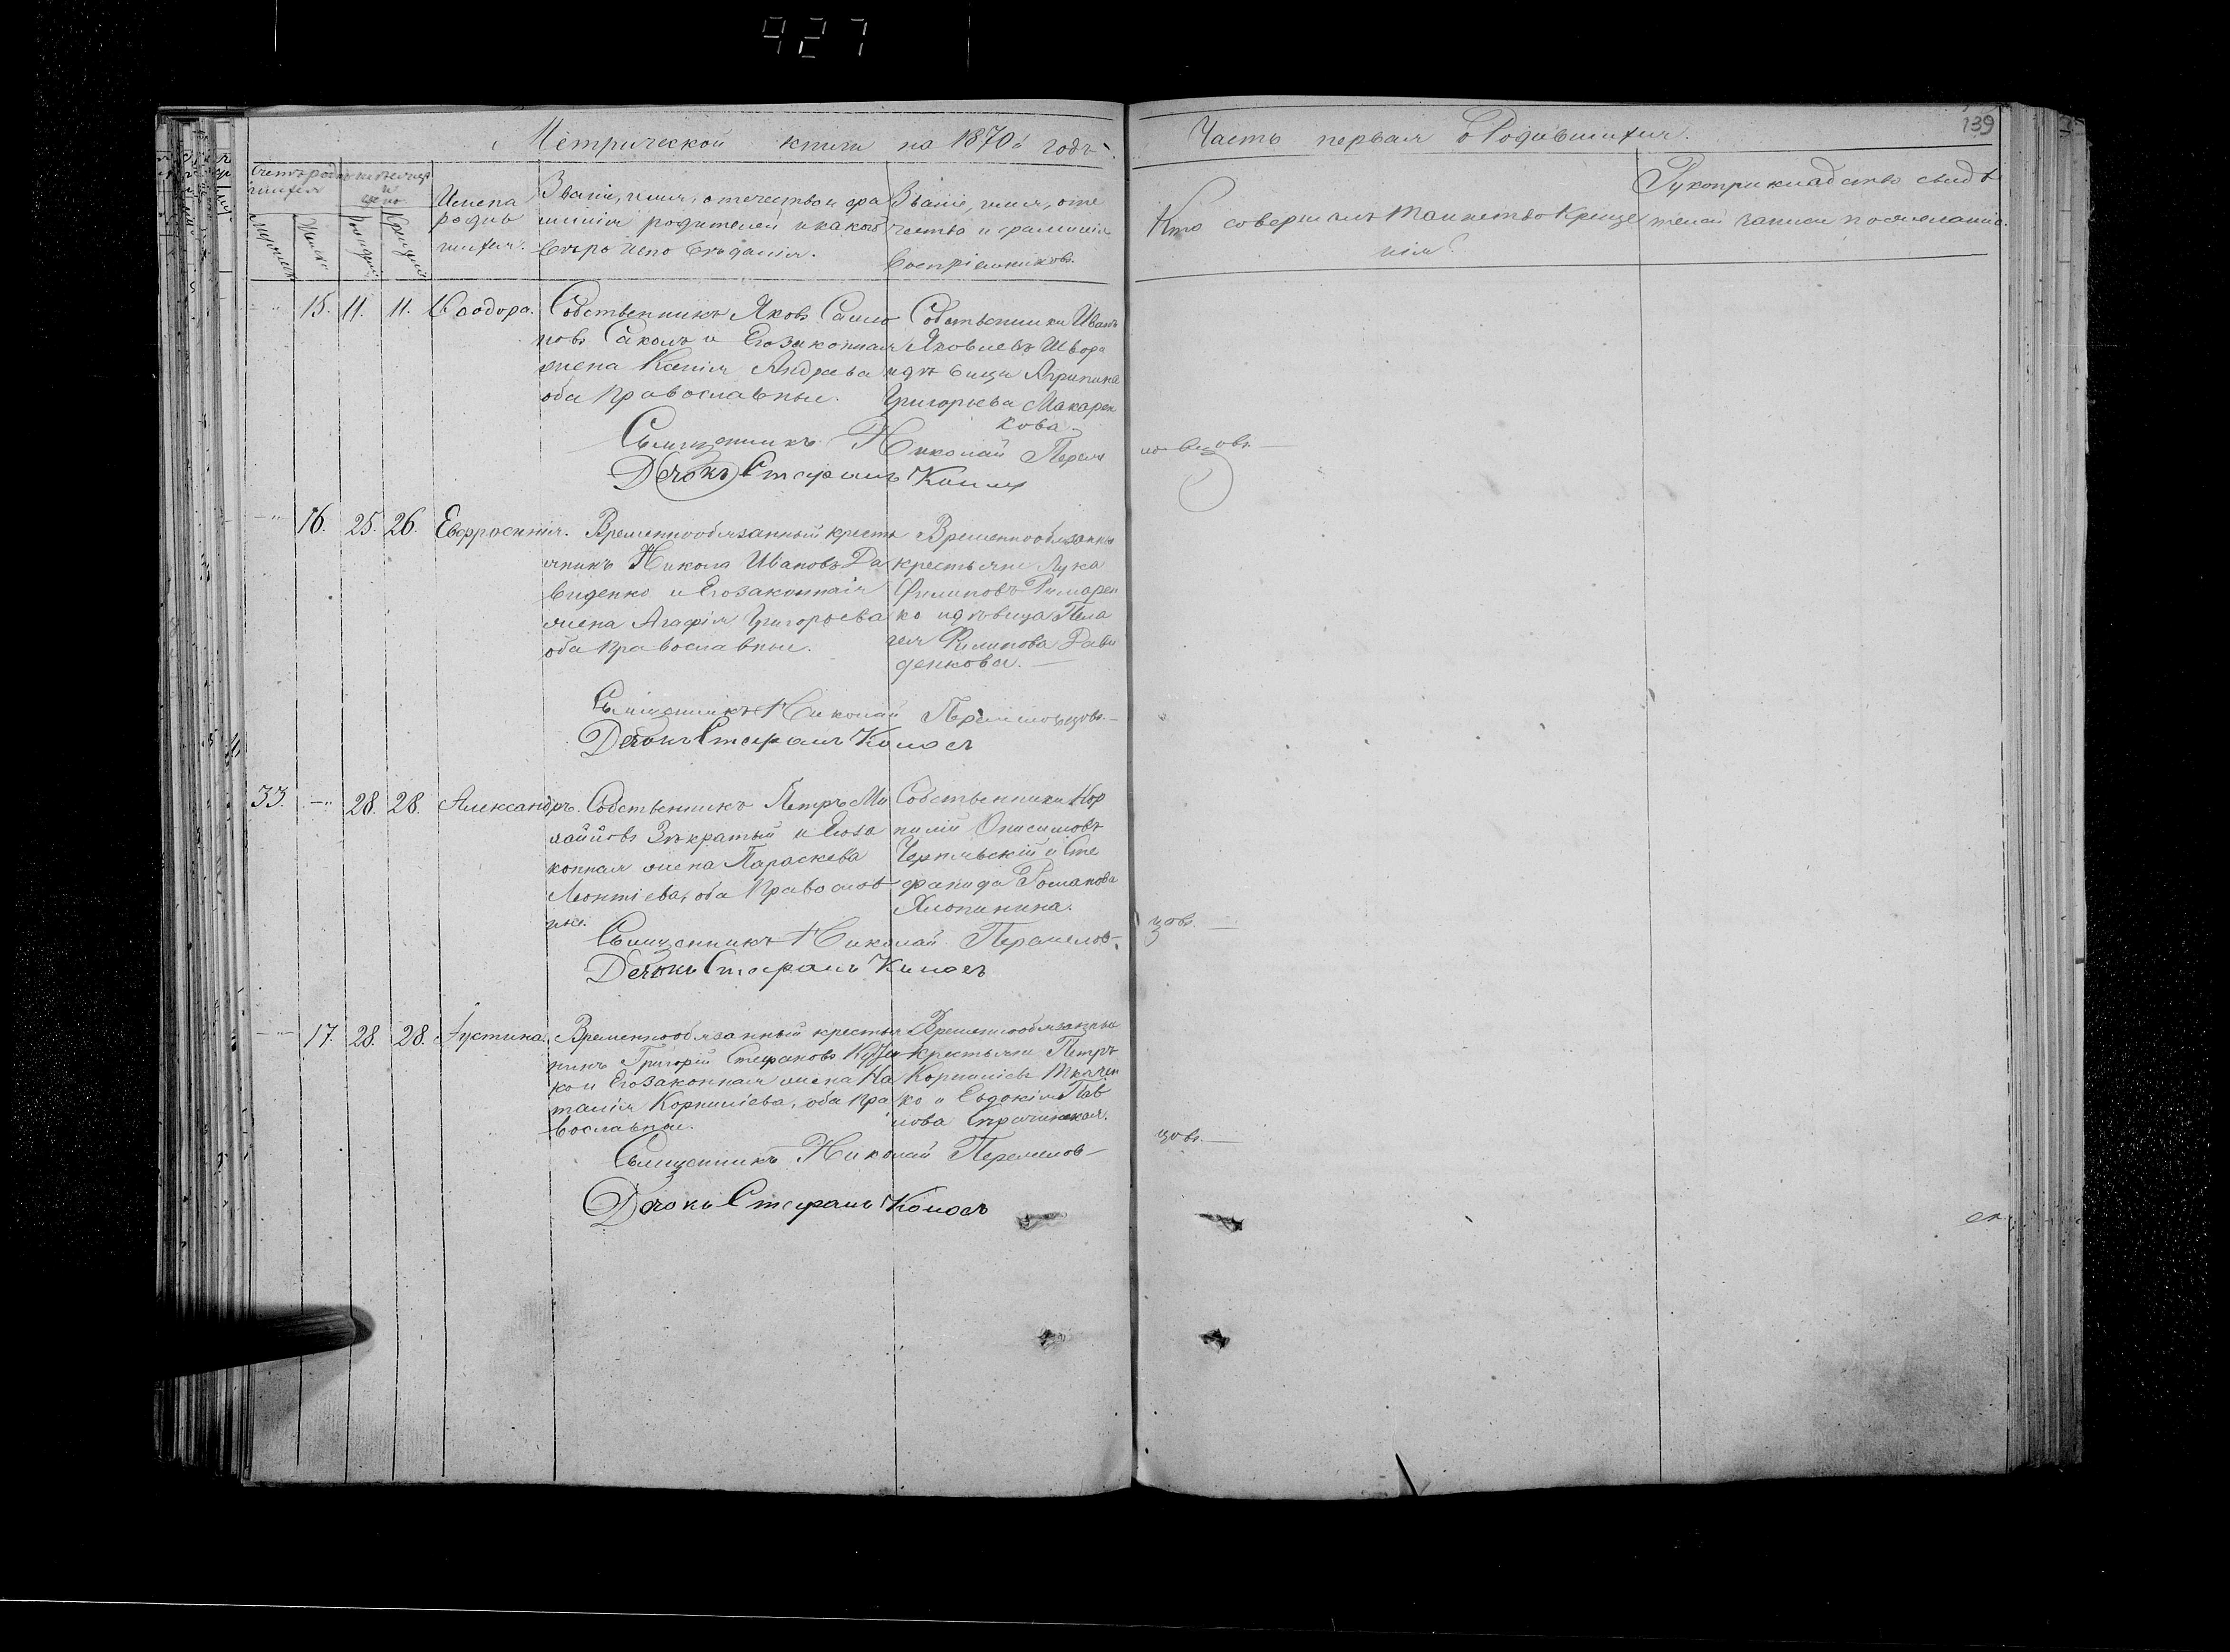 927
Метрической книги на 1870й годъ.
Часть первая о Родившихся.
139
Счетъ родив
шихся
Мѣсяцъ
и
число
Женск
Рожденія
Крещенія
Имена
родив
шихся.
Званіе, имя, отечество и фа
милія родителей и какого
вѣроисповѣданія.
Званіе, имя, оте
чество и фамилія
Воспріемниковъ.
Кто совершалъ таинство Креще
нія?
Рукоприкладство свидѣ
телей записи по желанію.
15. 11. 11. Ѳеодора.
Собственникъ Яковъ Само
новъ Сакалъ и Его законная
жена Ксенія Андреева
оба православные.
Собственники Иванъ
Яковлевъ Швора
и дѣвица Агрипина
Григорьева Макарен
кова.
Священникъ Николай Перем
ловцовъ.
Дьячокъ Стефанъ
16. 25. 26. Евфросинія.
Временнообязанный кресть
янинъ Никола Ивановъ Да
виденко и Его законная
жена Агафія Григорьева
оба православные.
Временнообязанные
крестьяне Лука
Филиповъ Римарен
ко и дѣвица Пела
гея Филипова Дави
денкова.
Священникъ Николай
Дьячокъ Стефанъ
33. 28. 28. Александръ.
Собственникъ Петръ Ми
хайловъ и Его за
конная жена Параскева
Леонтіева, оба Православ
ные.
Собственники Кор
нилій Онисимовъ
и Сте
фанида Романова
Хлопинина.
Священникъ Николай
цовъ.
Дьячокъ Стефанъ
17. 28. 28. Іустина.
Временнообязанный крестья
нинъ Григорій Стефановъ
ко и Его законная жена На
талія Корниліева, оба пра
вославные.
Временнообязанные
крестьяне Петръ
Корниліевъ Ткачен
ко и Евдокія Пав
лова
Священникъ Николай
цовъ.
Дьячокъ Стефанъ